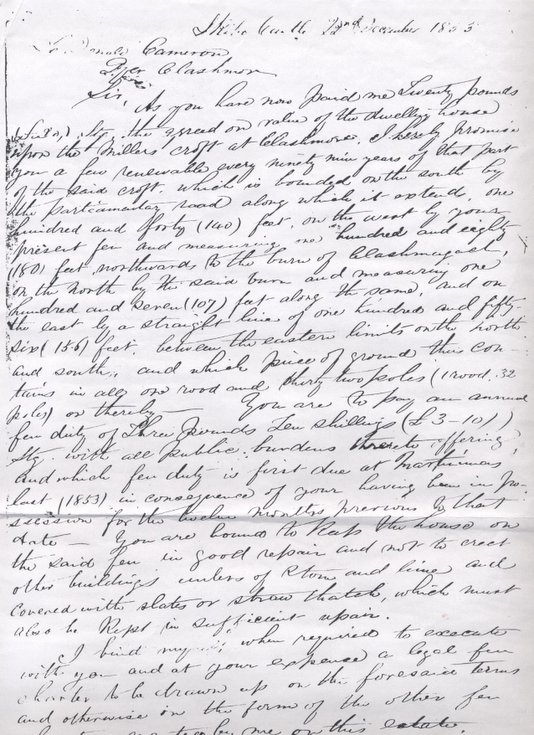 Skibo Castle 22nd December 1853
To Donald Cameron
Clashmore
Sir,
As you have now paid me Twenty pounds
Stg. the agreed on value of the dwelling house
upon the Millers croft at Clashmore, I hereby promise
you a feu renewable every ninety nine years of that part
of the said croft, which is bounded on the south by
the Parliamentary road along which it extends, one
hundred and forty (140) feet, on the west by your
present feu and measuring one hundred and eighty
(180) feet northwards to the burn of Clashmagist,
on the North by the said burn and measuring one
hundred and seven (107) feet along the same, and on
the east by a straight line of one hundred and fifty
six (156) feet, between the eastern limits on the north
and south, and which piece of ground thus con-
tains in all one rood and thirty two poles (1 rood. 32
poles) or thereby — You are to pay an annual
feu duty of Three pounds Ten shillings (£3-10/)
Stg. with all public burdens thereto
and which feu duty is first due at Martinmas
last (1853) in consequence of your having been in po-
ssession for the twelve months previous to that
date — You are bound to keep the house on
the said feu in good repair and not to erect
other buildings unless of stone and lime and
covered with slates or straw thatch, which must
also be kept in sufficient repair.
I bind myself when required to execute
with you and at your expense a legal feu
charter to be drawn up on the foresaid terms
and otherwise in the form of the other feu
by me on this estate.